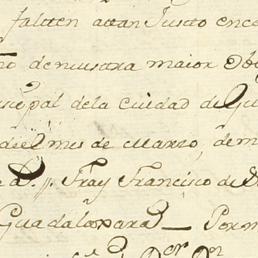 faltten attan Justo enca
to de nuestra maior Obe
iscopal de la Ciudad de Gu
del mes de Marzo, de m
D. Fray Francisco de
Guadalaxara Por m